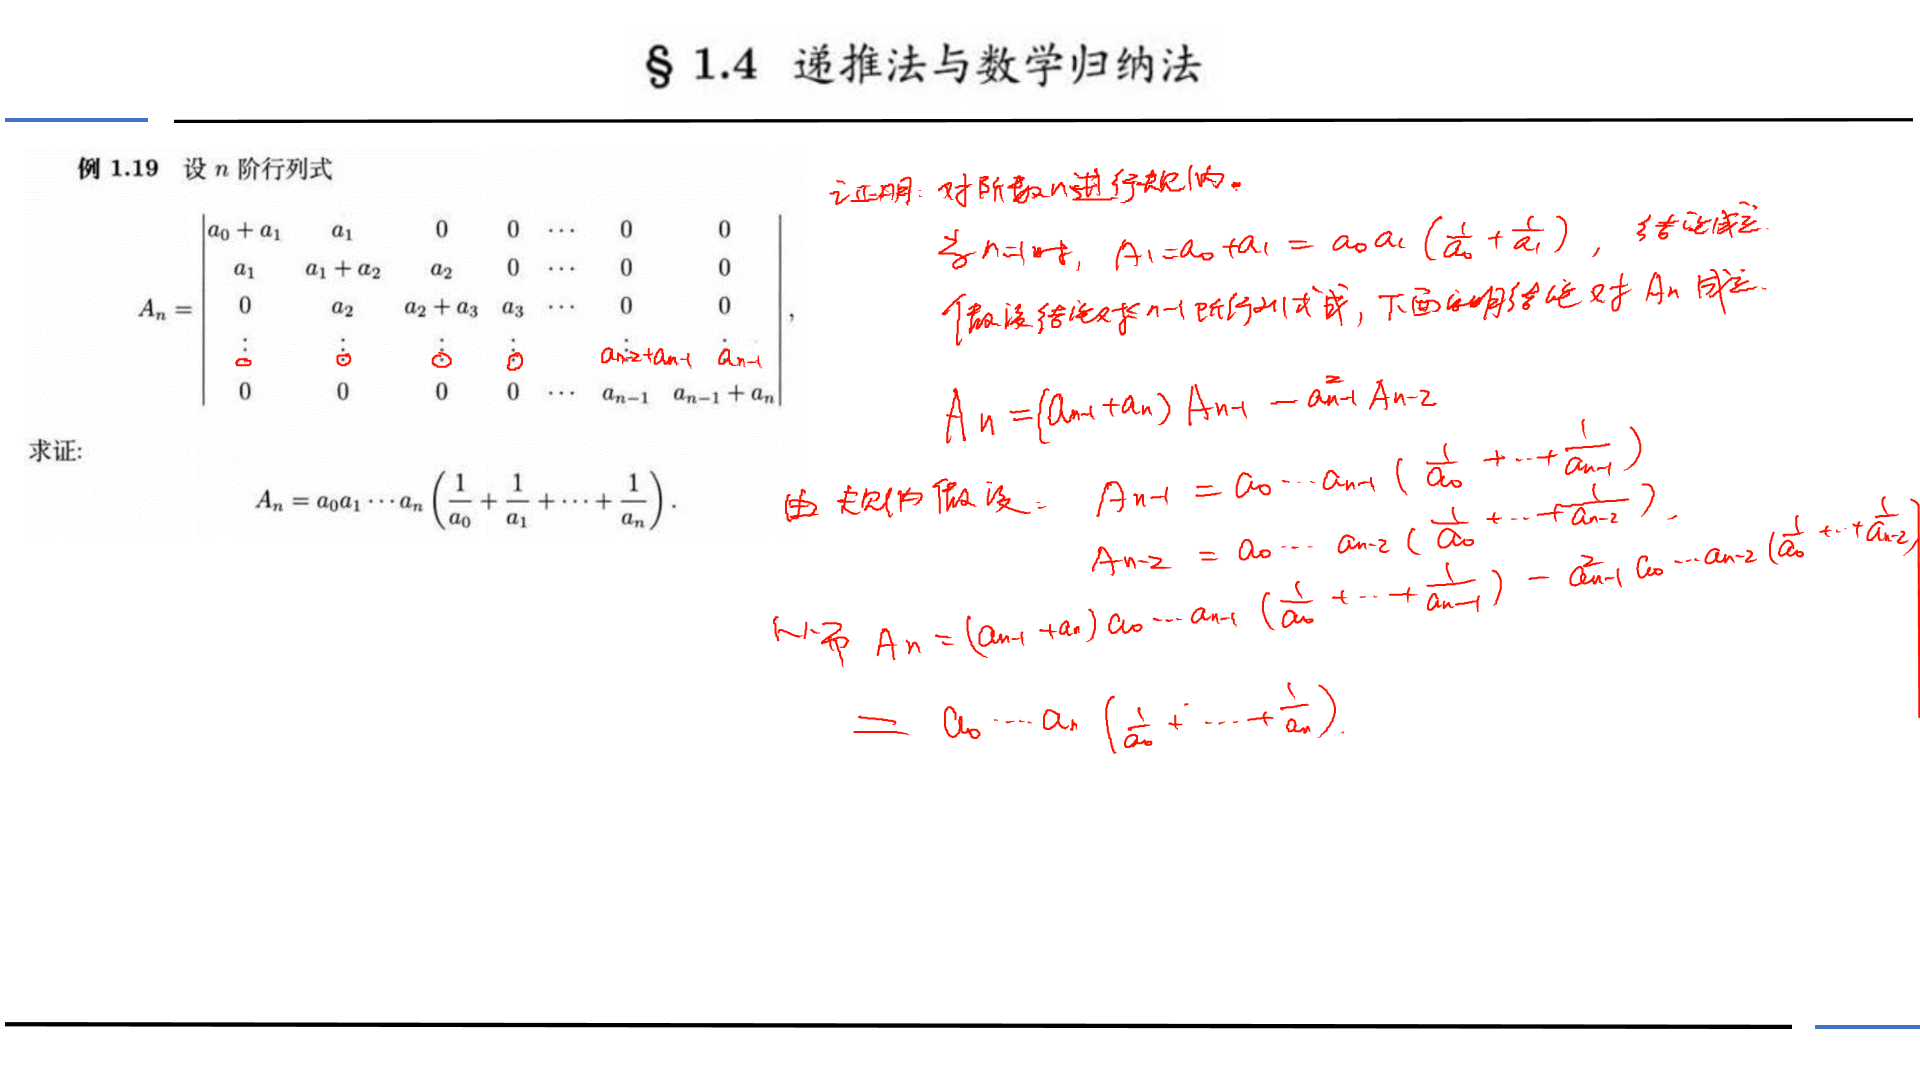 § 1.4 递推法与数学归纳法
例 1.19 设 n 阶行列式
A_n = | a_0 + a_1 a_1 0 0 ⋯ 0 0
a_1 a_1 + a_2 a_2 0 ⋯ 0 0
0 a_2 a_2 + a_3 a_3 ⋯ 0 0
⋮ ⋮ ⋮ ⋮ ⋮ ⋮
0 0 0 0 a_{n-2}+a_{n-1} a_{n-1}
0 0 0 0 ⋯ a_{n-1} a_{n-1} + a_n | ,
求证:
A_n = a_0a_1 ⋯ a_n (1/a_0 + 1/a_1 + ⋯ + 1/a_n) .
证明: 对阶数n进行归纳.
当n=1时, A_1=a_0+a_1 = a_0 a_1 (1/a_0 + 1/a_1), 结论成立.
假设结论对于n-1阶行列式成, 下面证明结论对 A_n 成立.
A_n =(a_{n-1}+a_n) A_{n-1} - a_{n-1}^2 A_{n-2}
由归纳假设: A_{n-1} = a_0 ⋯ a_{n-1} (1/a_0 + ⋯ + 1/a_{n-1})
A_{n-2} = a_0 ⋯ a_{n-2} (1/a_0 + ⋯ + 1/a_{n-2}).
从而 A_n = (a_{n-1}+a_n) a_0 ⋯ a_{n-1} (1/a_0 + ⋯ + 1/a_{n-1}) - a_{n-1}^2 a_0 ⋯ a_{n-2} (1/a_0 + ⋯ + 1/a_{n-2})
= a_0 ⋯ a_n (1/a_0 + ⋯ + 1/a_n).